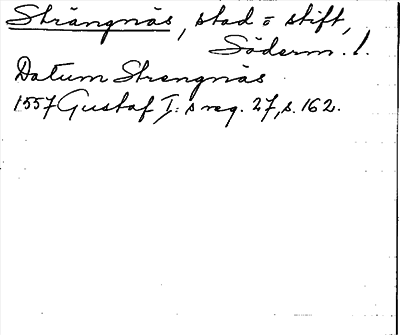 Strängnäs, stad o stift,
Söderm. l.
Datum Strengnäs
1557 Gustaf I:s reg. 27, s. 162.